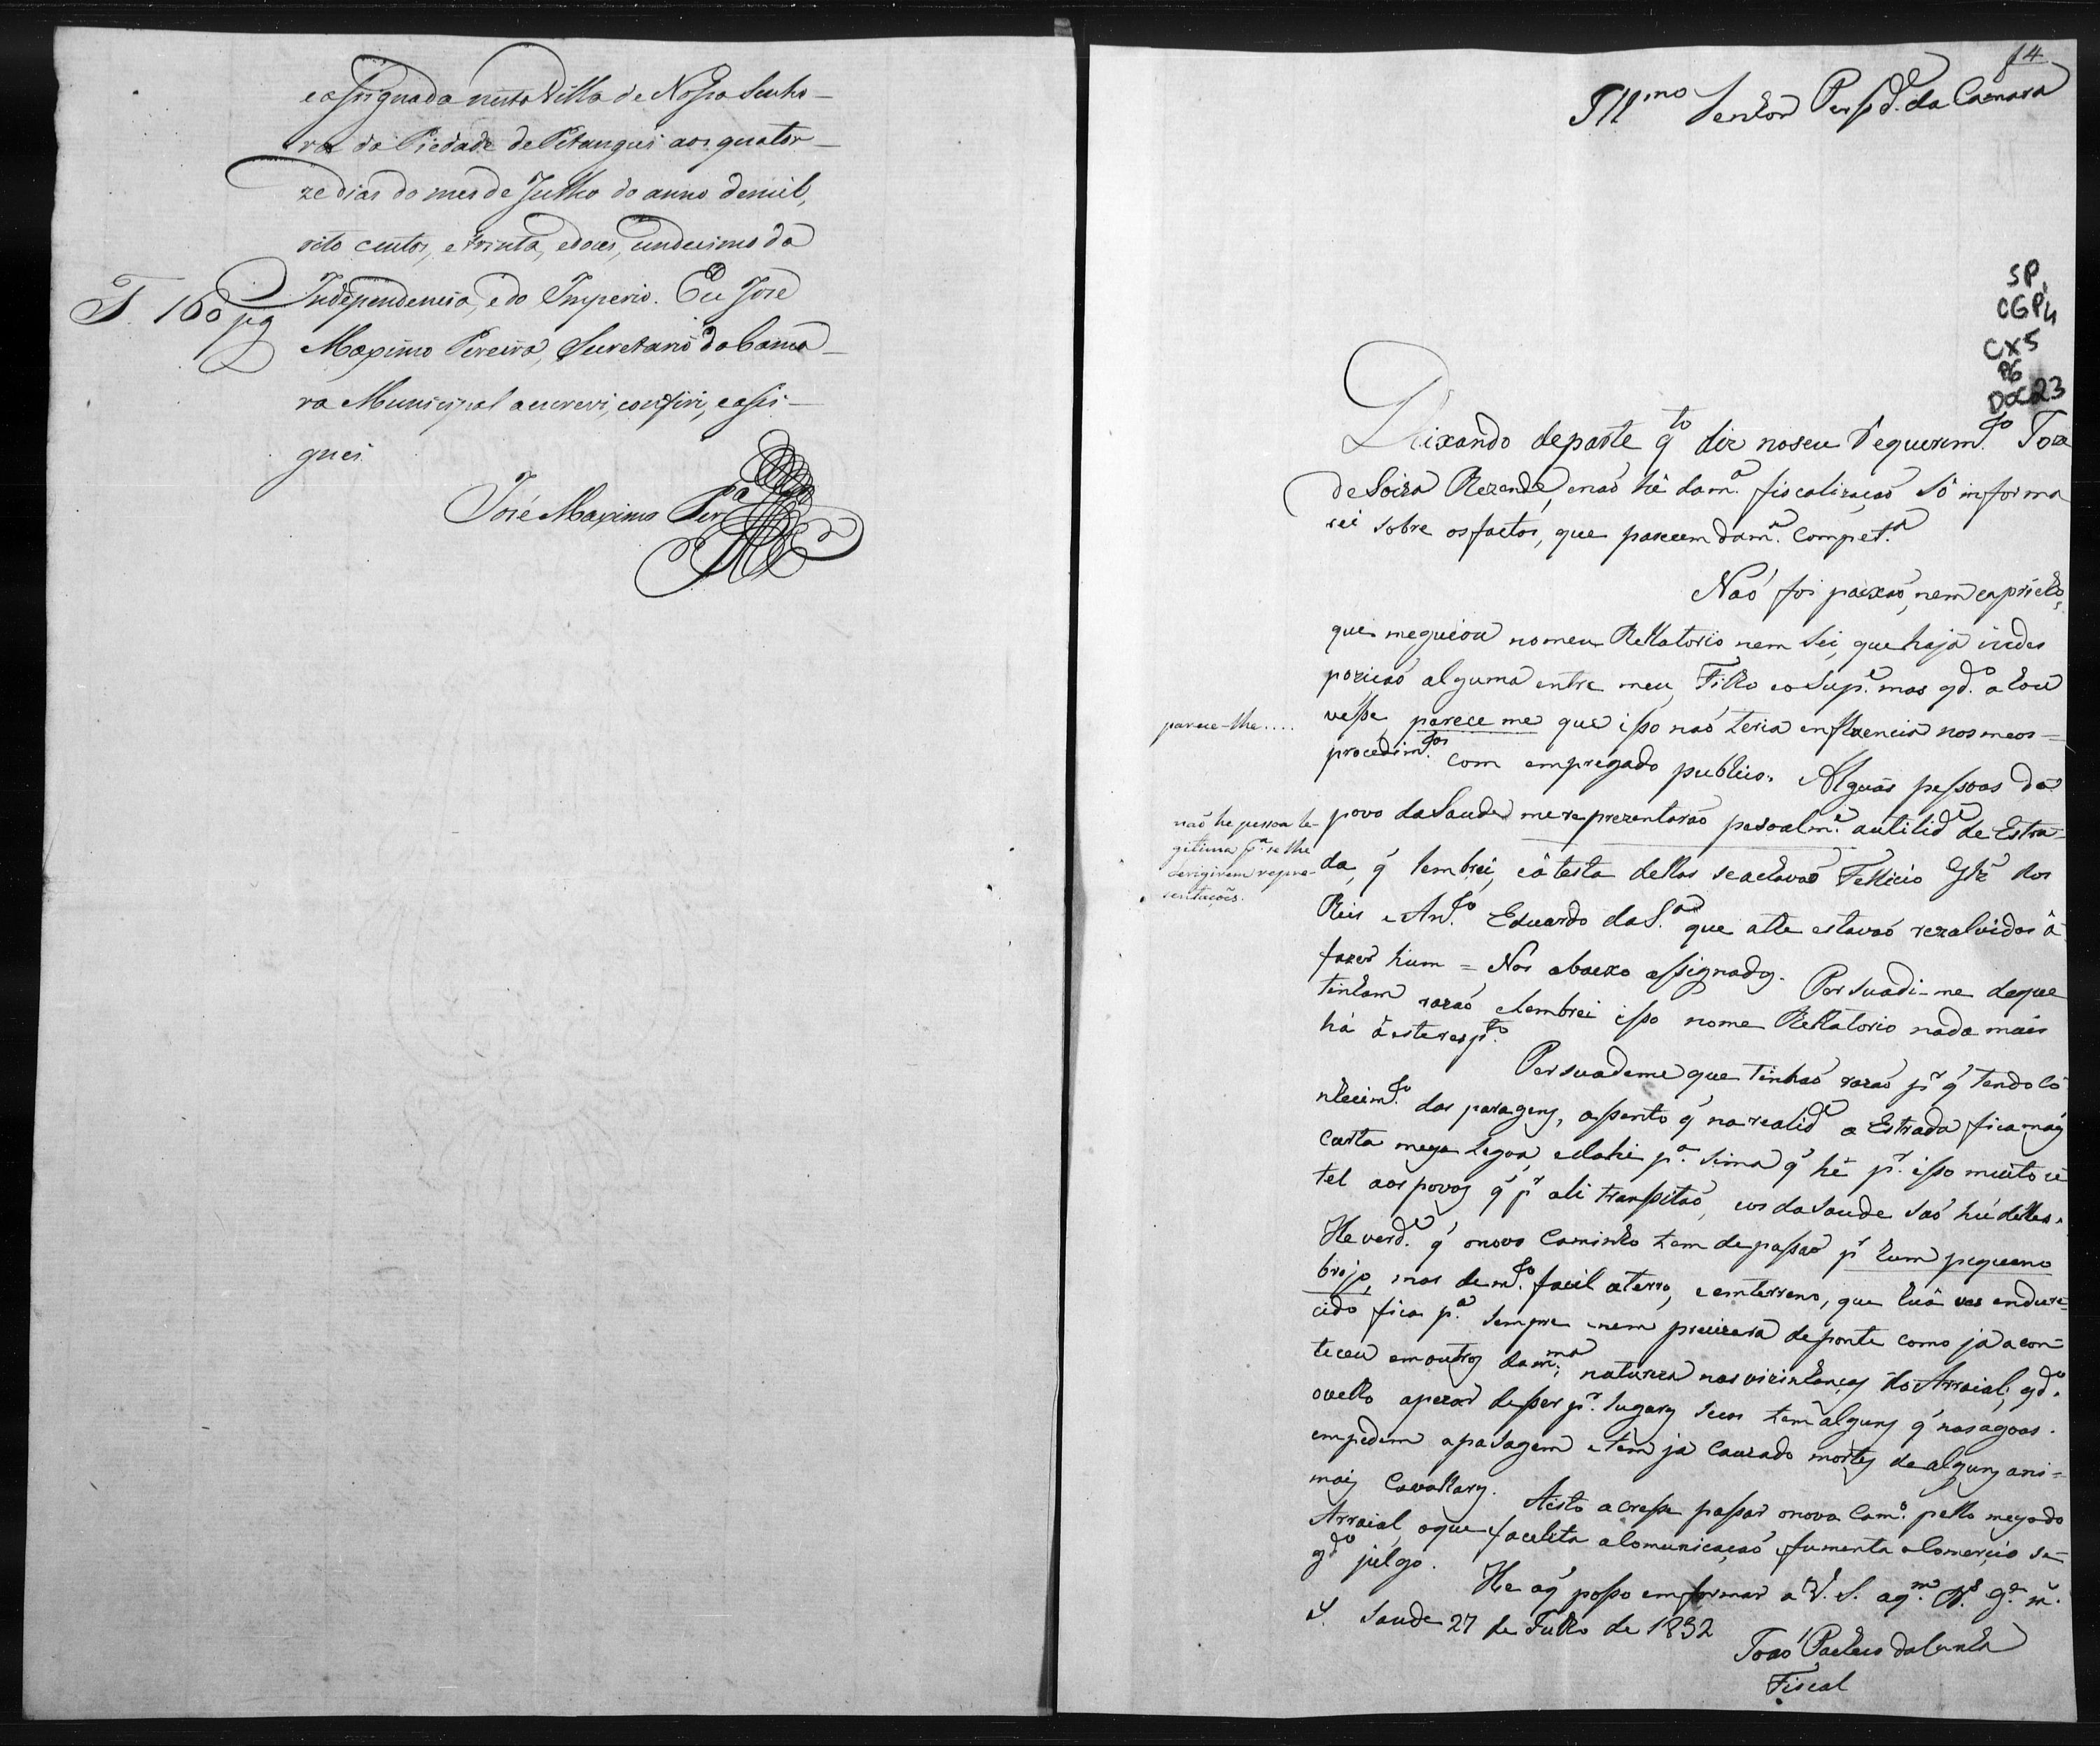 e assignada nesta Villa de Nossa Senho-
ra da Piedade de Pitangui aos quator-
ze dias do mes de Julho do anno de mil,
oito centos, e trinta, e dois, undecimo da
Independencia, e do Imperio. Eu José
T. 160 pg
Maximo Pereira, Secretario da Cama-
ra Municipal a escrevi, conferi, e assi-
gnei
José Maximo Per.ª
14
Ill.mo Senhor Prezd.e da Camara
SP,
CGP4
CX5
P6
DOC23
Deixando de parte q.to diz no seu Requerim.to Joze
de Soiza Rezende, e naõ hé da m.ª fiscalizaçaõ só informa
rei sobre os factos, que parecem da m.ª compet.ª
Naõ foi paixaõ, nem capricho,
que me guiou no meu Rellatorio nem sei, que haja indes
poziçaõ alguma entre meu Filho e o Sup.e mas qd.o a hou
vesse parece me que isso naõ teria influencia nos meos
parece-lhe....
procedim.tos com empregado publico. Alguãs pessoas do
povo da Saude me reprezentaraõ pesoalm.e a utilid.e de Estra-
não he pessoa le-
gitima p.ª se lhe
derigirem repre-
sentações.
da, q' lembrei, e á testa dellas se achavaõ Fellicio Glz dos
Reis e Ant.o Eduardo da S.ª que athe estavaõ rezolvidos á
fazer hum = Nos abaixo assignados. Persuadi-me de que
tinham razaõ e lembrei isso no meu Rellatorio nada mais
há á este resp.to
Persuademe que tinhaõ razaõ p.r q' tendo co
nhecim.to das paragens, assento q' na realid.e a Estrada fica mais
curta meya legoa, e dahi p.ª sima q' hé p.r isso muito u
tel aos povos q' p.r ali transitaõ, e os da Saude saõ hú delles.
He verd.e q' o novo Caminho tem de passar p.r hum pequeno
brejo, mas de m.to facil aterro, e em terreno, que huã vez endure-
cido fica p.ª sempre e nem precizará de ponte como já acon-
teceu em outros da m.ma natureza nas vizinhanças do Arraial; qd.o
o velho apezar de ser p.r lugares secos tem alguns q' nas agoas
empedem a pasagem e tem já cauzado mortes de alguns ani-
mais Cavallares. A isto acresse passar o novo Cam.o pello meyo do
Arraial, o que facelita a Comunicaçaõ e fumenta o Comercio se-
g.do julgo. He o q' posso emformar a V. S. a q.m D.s g.e m.s
Saude 27 de Julho de 1832
Joaõ Pacheco da Cunha
Fiscal